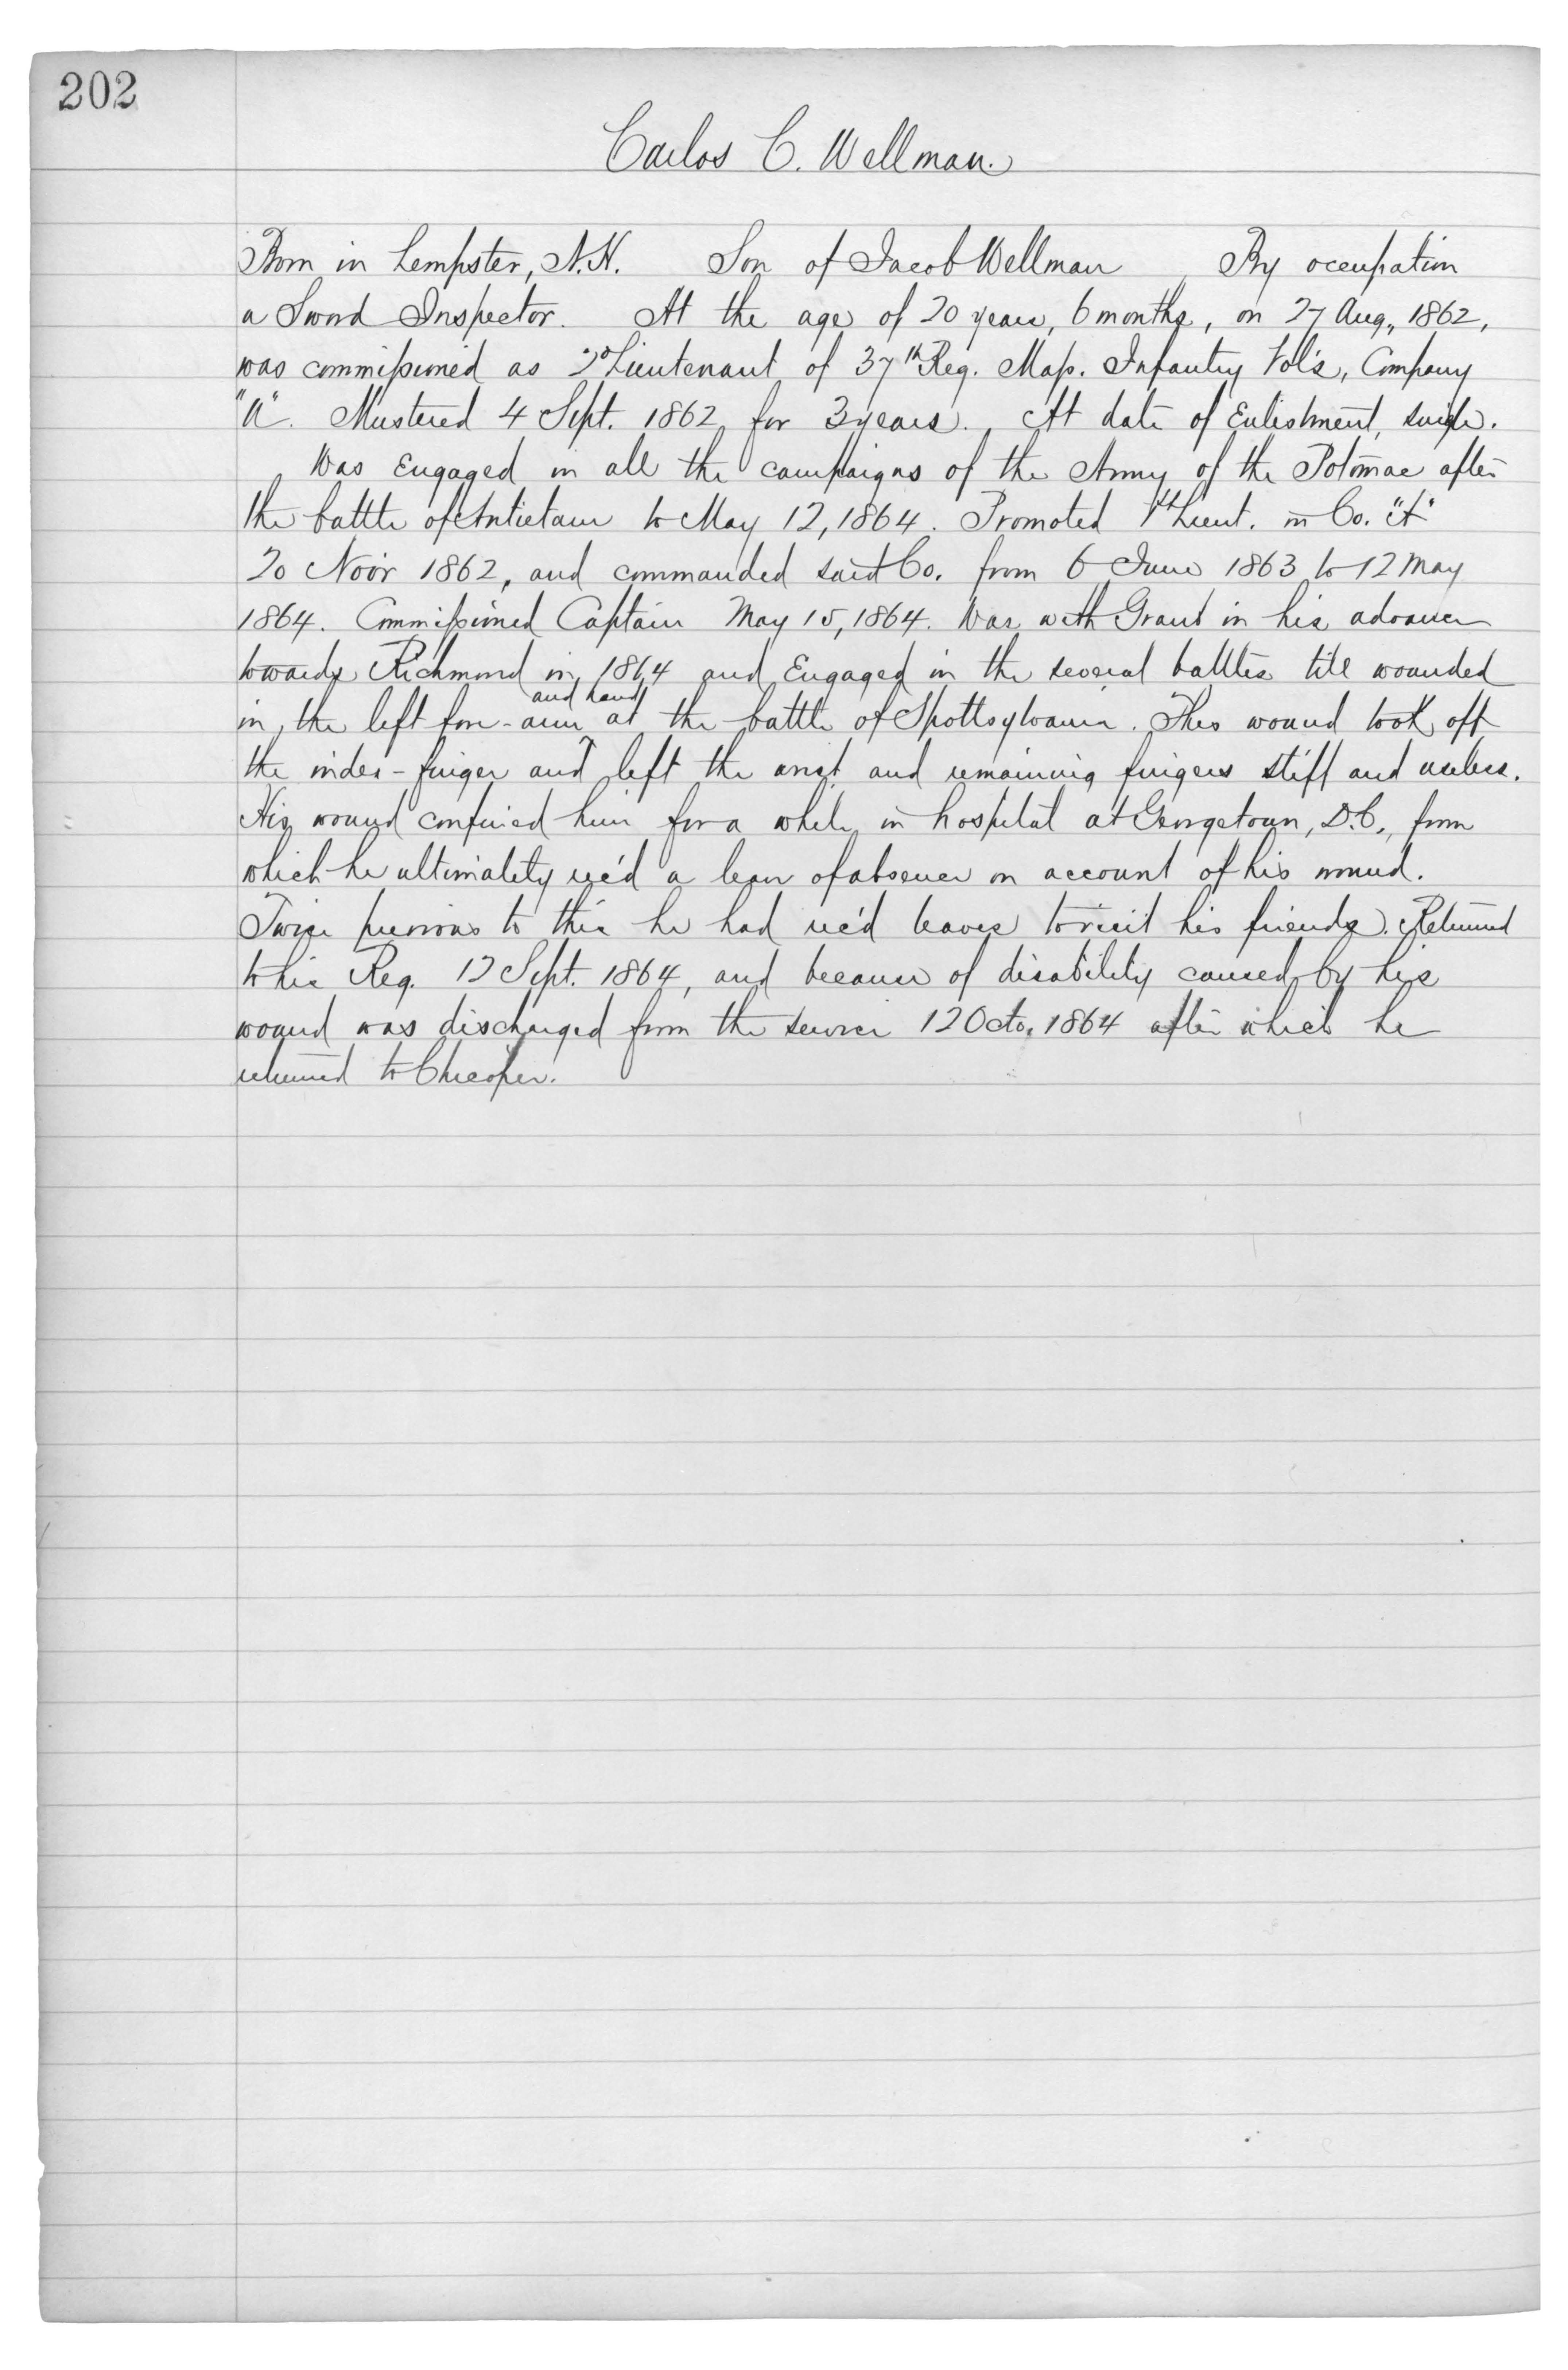 202
Carlos C. Wellman.
Born in Lempster, N.H. Son of Jacob Wellman By occupation
a Sword Inspector. At the age of 20 years, 6 months, on 27 Aug., 1862,
was commissioned as 2d Lieutenant of 37th Reg. Mass. Infantry Vol's, Company
"A". Mustered 4 Sept. 1862 for 3 years. At date of Enlistment, single.
Was Engaged in all the campaigns of the Army of the Potomac after
the battle of Antietam to May 12, 1864. Promoted 1st Lieut. in Co. "A"
20 Nov'r 1862, and commanded said Co. from 6 June 1863 to 12 May
1864. Commissioned Captain May 15, 1864. Was with Grant in his advance
towards Richmond in 1864 and Engaged in the several battles till wounded
and hand
in the left fore-arm at the battle of Spottsylvania. This wound took off
the index-finger and left the wrist and remaining fingers stiff and useless.
His wound confined him for a while in hospital at Georgetown, D.C., from
which he ultimately rec'd a leave of absence on account of his wound.
Twice previous to this he had rec'd leaves to visit his friends. Returned
to his Reg. 12 Sept. 1864, and because of disability caused by his
wound was discharged from the service 12 Octo. 1864 after which he
returned to Chicopee.